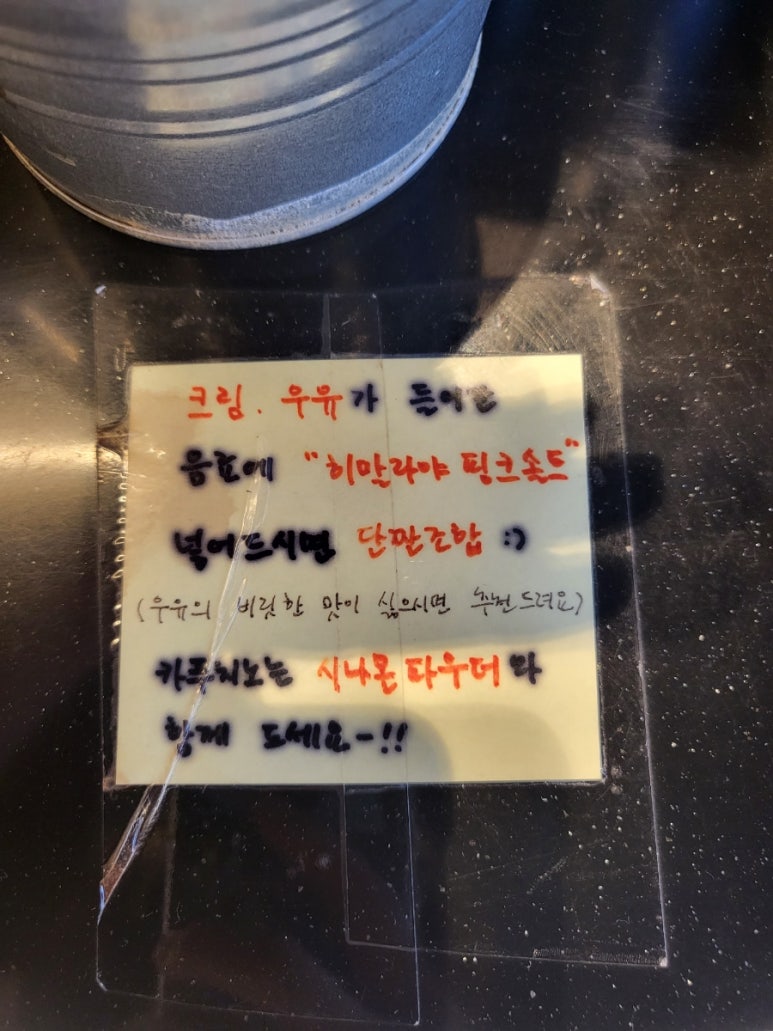 크림. 우유가 들어간
음료에 "히말라야 핑크솔트"
넣어드시면 단짠조합 :)
(우유의 비릿한 맛이 싫으시면 추천드려요)
카푸치노는 시나몬파우더와
함께 드세요~!!